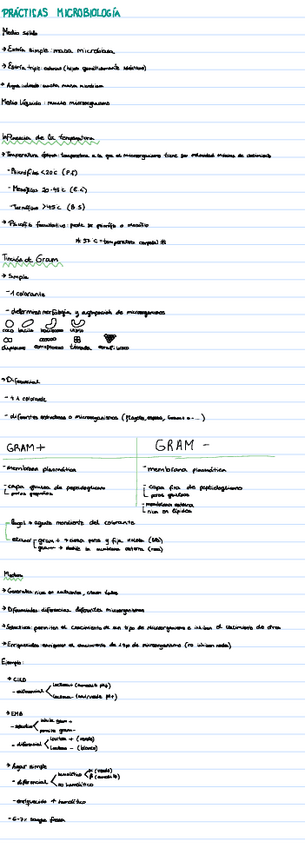 PRÁCTICAS MICROBIOLOGÍA
Medio sólido
→ Estría simple: masa microbiana
→ Estría triple: colonias (hijas genéticamente idénticas)
→ Agar inclinado: masa
Medio líquido: mucho microorganismo
Influencia de la temperatura
→ Temperatura óptima: temperatura a la que el microorganismo tiene su velocidad máxima de crecimiento
- Psicrófilos <20ºC (P.F)
- Mesófilos 20-45ºC (E.C)
- Termófilos >45ºC (B.S)
→ Psicrófilo facultativo: puede ser psicrófilo o mesófilo
37ºC = temperatura corporal
Tinción de Gram
→ Simple
- 1 colorante
- determinar morfología y agrupación de microorganismos
coco bacilo vibrio
diplococo estreptococo tétrada estafilococo
→ Diferencial
- +1 colorante
- diferentes estructuras o microorganismos (flagelos, esporas, Gram+ o -...)
GRAM + GRAM -
- membrana plasmática - membrana plasmática
- capa gruesa de peptidoglicano - capa fina de peptidoglicano
- membrana externa
rica en lípidos
lugol → agente mordiente del colorante
Medios
→ Generales: ricos en nutrientes, crecen todos
→ Diferenciales: diferencias diferentes microorganismos
→ Selectivos: permiten el crecimiento de un tipo de microorganismo e inhiben el crecimiento de otros
→ Enriquecidos: enriquecer el crecimiento de un tipo de microorganismo (no inhiben nada)
Ejemplo:
→ CLED
- diferencial
→ EMB
- selectivo
- diferencial lactosa +
lactosa -
→ Agar sangre
- diferencial hemolítico
no hemolítico
- enriquecido + hemolítico
- 5-7% sangre fresca